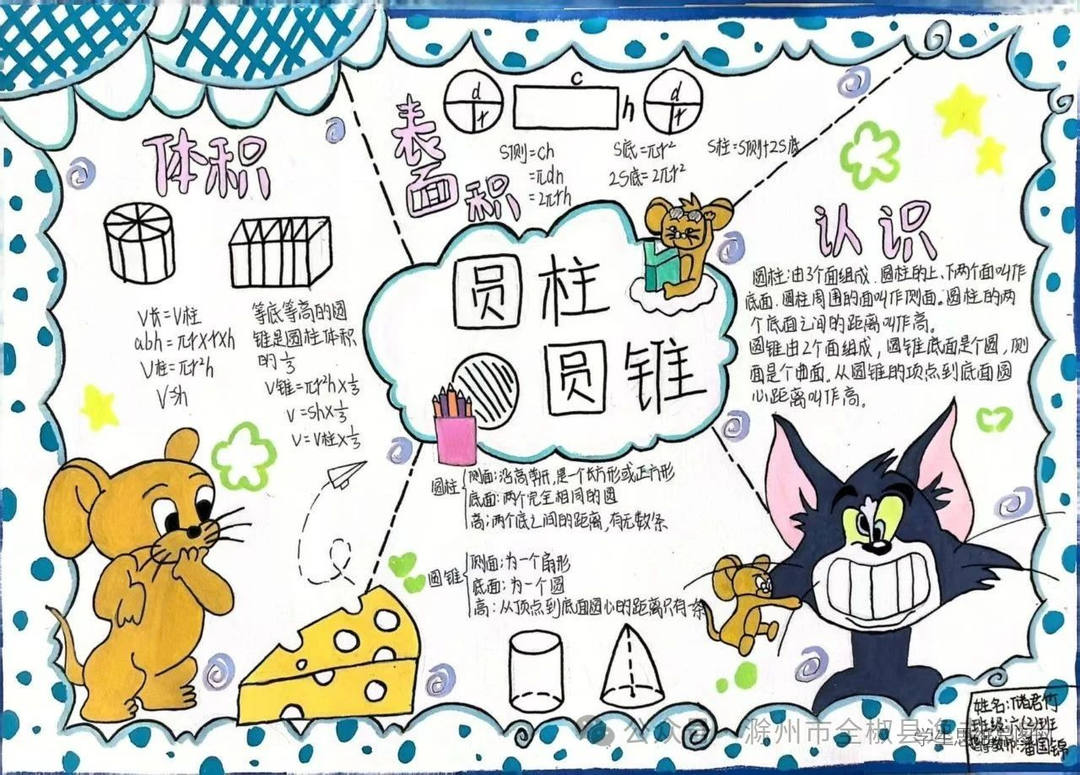 体积
V长=V柱
abh=πr×r×h
V柱=πr²h
V=sh
等底等高的圆
锥是圆柱体积
的1/3
V锥=πr²h×1/3
V=sh×1/3
V=V柱×1/3
表面积
d
r
c
h
d
r
S侧=ch
=πdh
=2πrh
S底=πr²
2S底=2πr²
S柱=S侧+2S底
圆柱
圆锥
认识
圆柱:由3个面组成.圆柱的上、下两个面叫作
底面.圆柱周围的面叫作侧面.圆柱的两
个底面之间的距离叫作高。
圆锥由2个面组成,圆锥底面是个圆,侧
面是个曲面.从圆锥的顶点到底面圆
心距离叫作高。
圆柱
侧面:沿高剪开,是一个长方形或正方形
底面:两个完全相同的圆
高:两个底之间的距离,有无数条
圆锥
侧面:为一个扇形
底面:为一个圆
高:从顶点到底面圆心的距离只有一条
姓名:
班级:六(2)班
潘国锦
公众号 滁州市全椒县